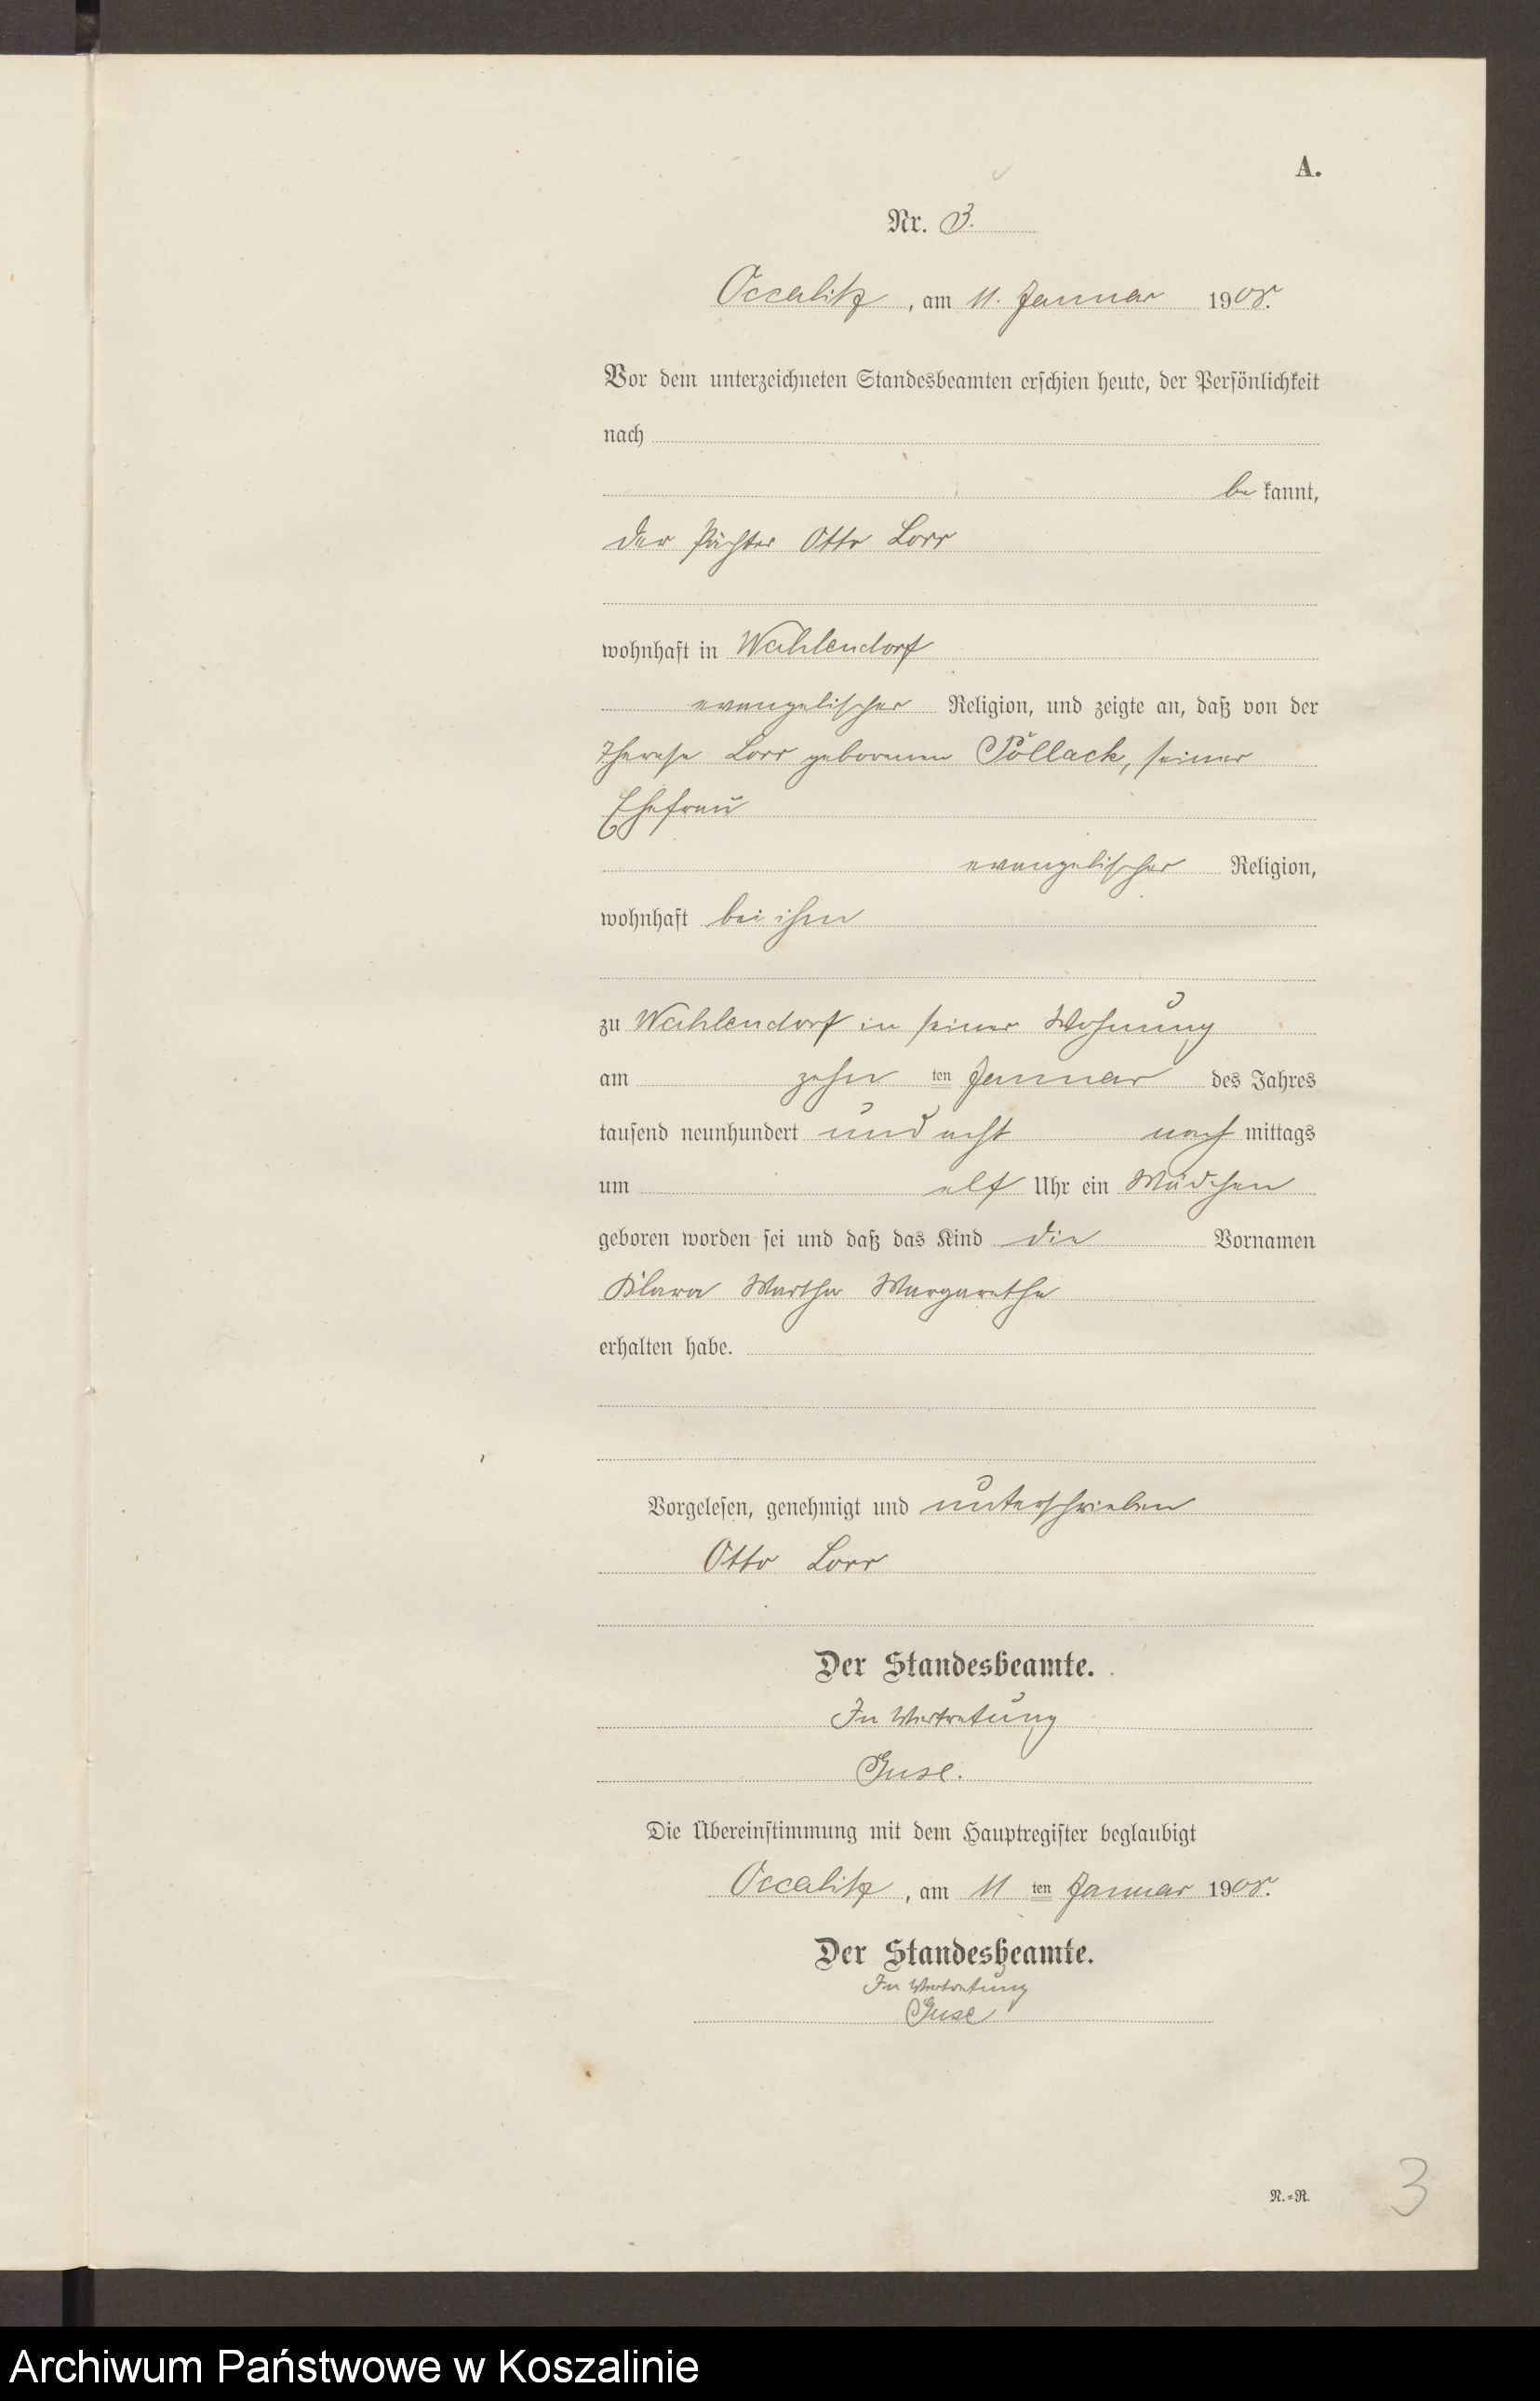 A.
Nr. 3.
Occalitz, am 11. Januar 1908.
Vor dem unterzeichneten Standesbeamten erschien heute, der Persönlichkeit
nach
be kannt,
der Pächter Otto Lorr
wohnhaft in Wahlendorf
evangelischer Religion, und zeigte an, daß von der
Therese Lorr geborenen Pollack, seiner
Ehefrau
evangelischer Religion,
wohnhaft bei ihm
zu Wahlendorf in seiner Wohnung
am zehn ten Januar des Jahres
tausend neunhundert und acht nach mittags
um elf Uhr ein Mädchen
geboren worden sei und daß das Kind die Vornamen
Klara Martha Margarethe
erhalten habe.
Vorgelesen, genehmigt und unterschrieben
Otto Lorr
Der Standesbeamte.
In Vertretung
Guse.
Die Übereinstimmung mit dem Hauptregister beglaubigt
Occalitz, am 11 ten Januar 1908.
Der Standesbeamte.
In Vertretung
Guse
N.=R.
3
Archiwum Państwowe w Koszalinie